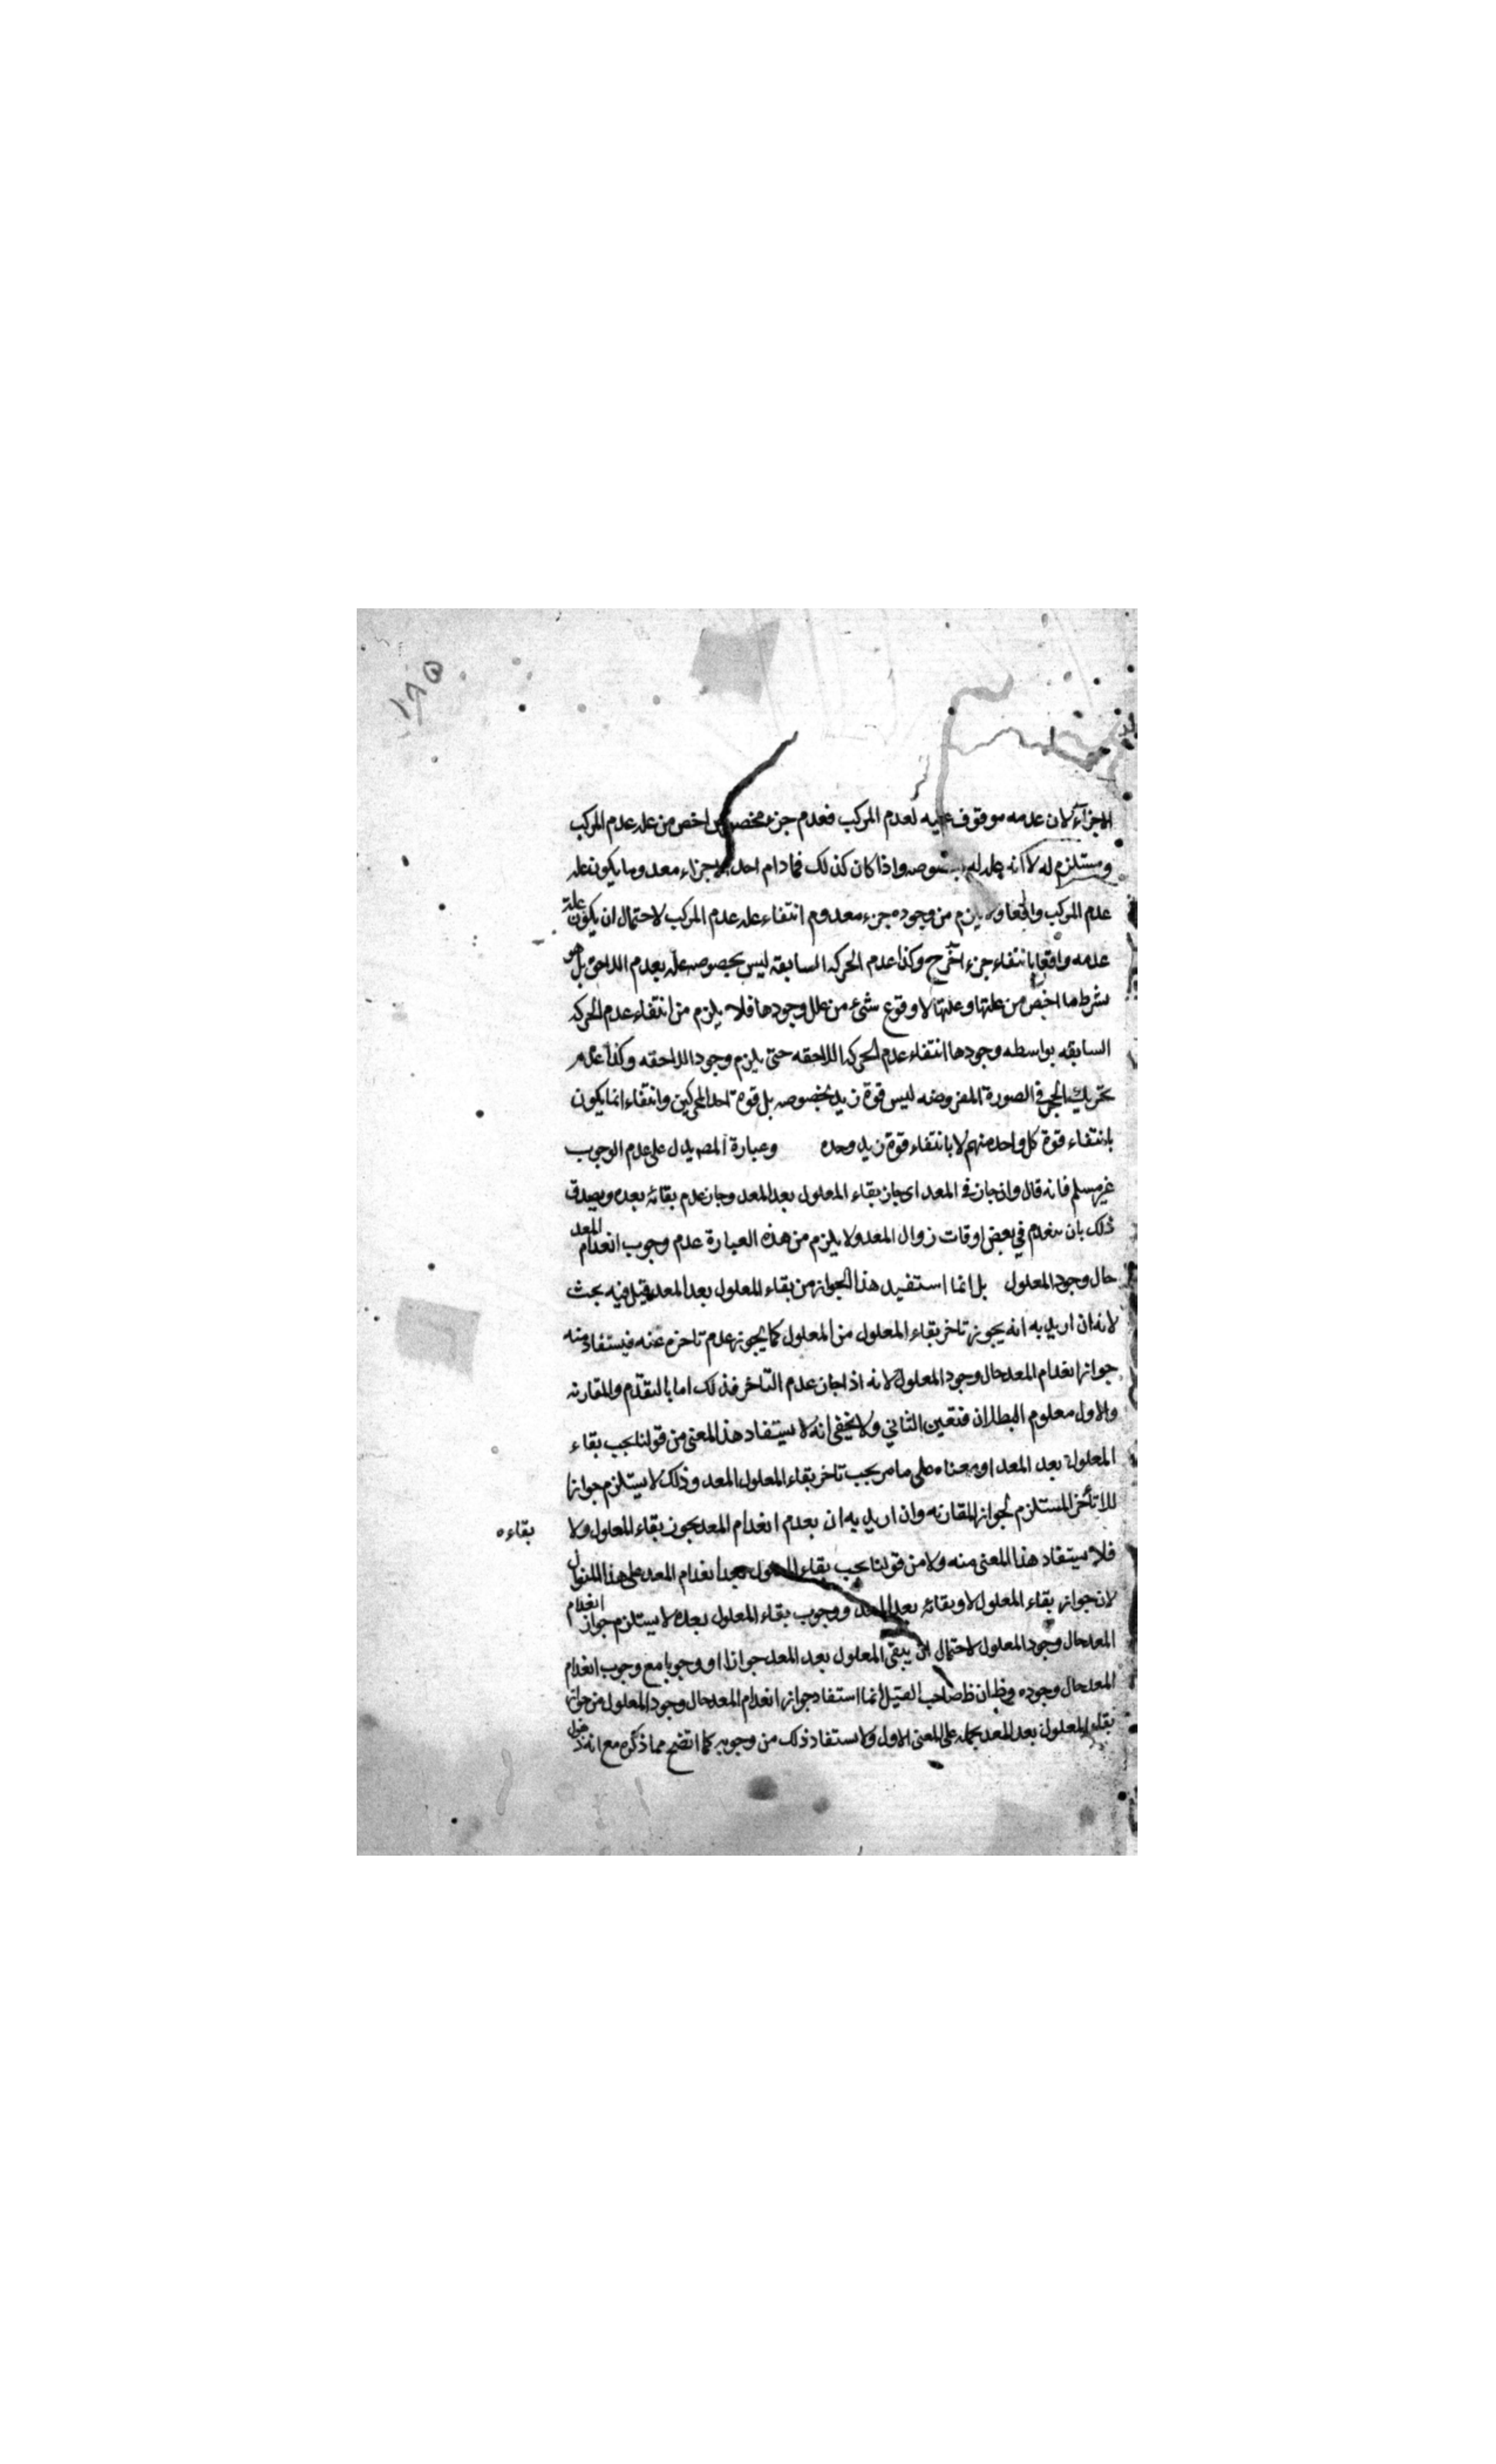 ١٨٥
الاجزاء لان عدمه موقوف عليه لعدم المركب فعدم جزء مخصوص اخص من علة عدم المركب
ومستلزم له لا انه علة له بخصوصه واذا كان كذلك فمادام احد الاجزاء معدوما يكون علة
عدم المركب واقعا ولا يلزم من وجود جزء معدوم انتفاء علة عدم المركب لاحتمال ان يكون علة
عدمه واقعا بانتفاء جزء آخر ح وكذا عدم الحركة السابقة ليس بخصوصه علة بعدم اللاحق بل هو
شرط ما اخص من علتها وعلتها لا وقوع شئ من علل وجودها فلا يلزم من انتفاء عدم الحركة
السابقه بواسطه وجودها انتفاء عدم الحركة اللاحقه حتى يلزم وجود اللاحقه وكذا علة
تحريك الحجر في الصورة المفروضه ليس قوة زيد بخصوصه بل قوة احد المحركين وانتفاء انما يكون
بانتفاء قوة كل واحد منهم لا بانتفاء قوة زيد وحده وعبارة المصه يدل على عدم الوجوب
غير مسلم فانه قال وان جاز في المعد اى جاز بقاء المعلول بعد المعد وجاز عدم بقائه بعده ويصدق
ذلك بان ينعدم في بعض اوقات زوال المعد ولا يلزم من هذه العبارة عدم وجوب انعدام المعد
حال وجود المعلول بل انما استفيد هذا الجواز من بقاء المعلول بعد المعد قيل فيه بحث
لانه ان اريد به انه يجوز تاخر بقاء المعلول من المعلول كما يجوز عدم تاخره عنه فيستفاد منه
جواز انعدام المعد حال وجود المعلول لانه اذا جاز عدم التاخر فذلك اما بالتقدم والمقارنه
والاول معلوم البطلان فتعين الثاني ولا يخفى انه لا يستفاد هذا المعنى من قولنا يجب بقاء
المعلول بعد المعد اومعناه على ما مر يجب تاخر بقاء المعلول المعد وذلك لا يستلزم جواز
اللاتأخر المستلزم لجواز المقارنه وان اريد به ان بعدم انعدام المعد يجوز بقاء المعلول ولا
بقاءه
فلا يستفاد هذا المعنى منه ولا من قولنا يجب بقاء المعلول بعد انعدام المعد على هذا المنوال
لان جواز بقاء المعلول لا وبقائه بعد المعد ووجوب بقاء المعلول بعده لا يستلزم جواز انعدام
المعد حال وجود المعلول لاحتمال ان يبقى المعلول بعد المعد جوازا او وجوبا مع وجوب انعدام
المعد حال وجوده صاحب القيل انما استفاد جواز انعدام المعد حال وجود المعلول من جواز
بقاء المعلول بعد المعد بحمله على المعنى الاول ولا استفاد ذلك من وجوبه كما اتضح مما ذكره مع انه